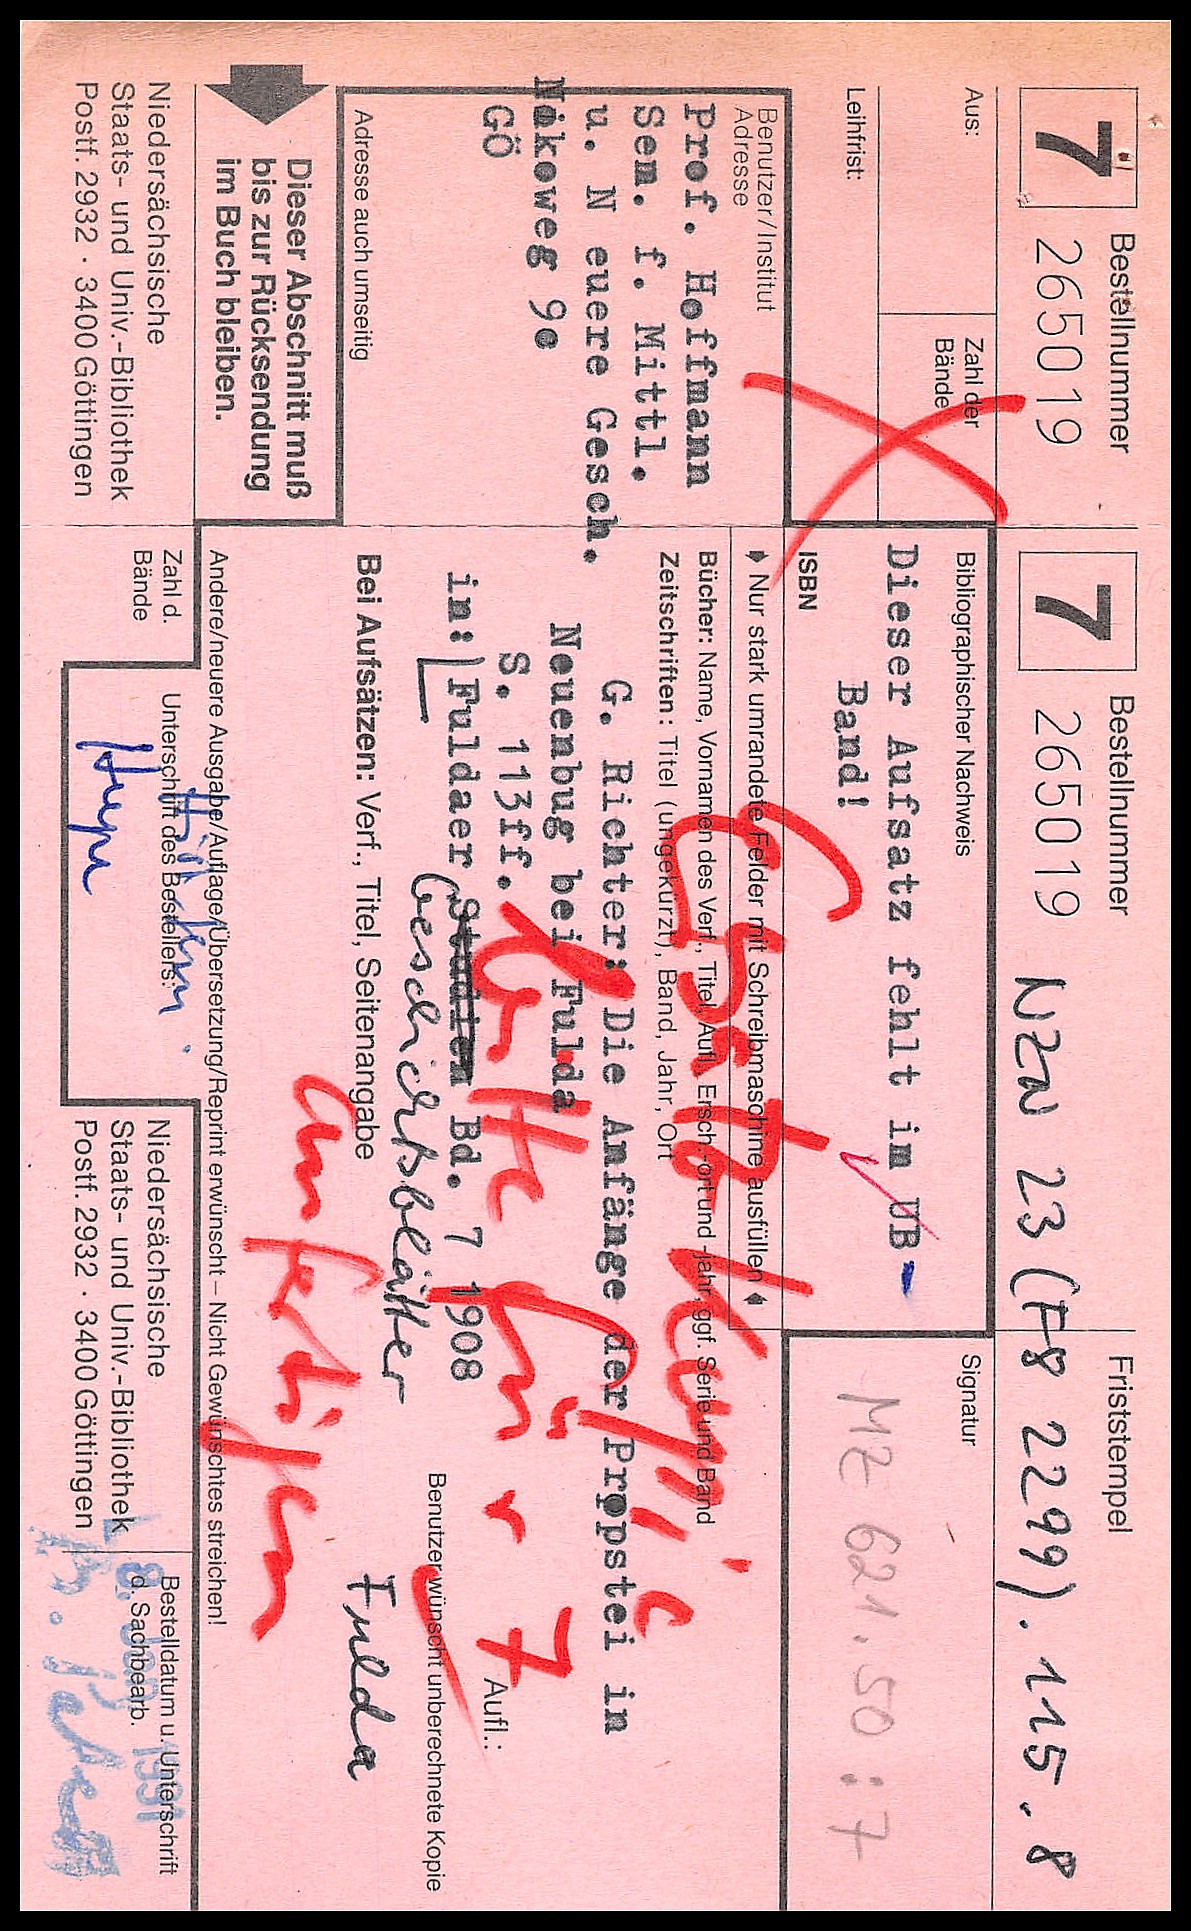 7 Bestellnummer
265019
Aus:
Zahl der
Bände
Leihfrist:
Benutzer/Institut
Adresse
Prof. Hoffmann
Sem. f. Mittl.
u. N euere Gesch.
Nikoweg 9e
GÖ
Adresse auch umseitig
Dieser Abschnitt muß
bis zur Rücksendung
im Buch bleiben.
Niedersächsische
Staats- und Univ.-Bibliothek
Postf. 2932 · 3400 Göttingen
7 Bestellnummer
265019
NZW 23 (F8 2299). 115. 8
Friststempel
Bibliographischer Nachweis
Dieser Aufsatz fehlt in UB-
Band!
ISBN
Signatur
MZ 621.50:7
♦ Nur stark umrandete Felder mit Schreibmaschine ausfüllen ♦
Bücher: Name, Vornamen des Verf., Titel, Aufl., Ersch.-ort und -jahr, ggf. Serie und Band
Zeitschriften: Titel (ungekürzt), Band, Jahr, Ort
G. Richter: Die Anfänge der Propstei in
Neuenbug bei Fulda
S. 113ff.
in: Fuldaer Studien Bd. 7 1908
Geschichtsblätter
Fulda
Ersatzkopie
bitte für 7
anfertigen
Aufl.:
Bei Aufsätzen: Verf., Titel, Seitenangabe
Benutzer wünscht unberechnete Kopie
Andere/neuere Ausgabe/Auflage/Übersetzung/Reprint erwünscht – Nicht Gewünschtes streichen!
Zahl d.
Bände
Unterschrift des Bestellers:
Niedersächsische
Staats- und Univ.-Bibliothek
Postf. 2932 · 3400 Göttingen
Bestelldatum u. Unterschrift
d. Sachbearb.